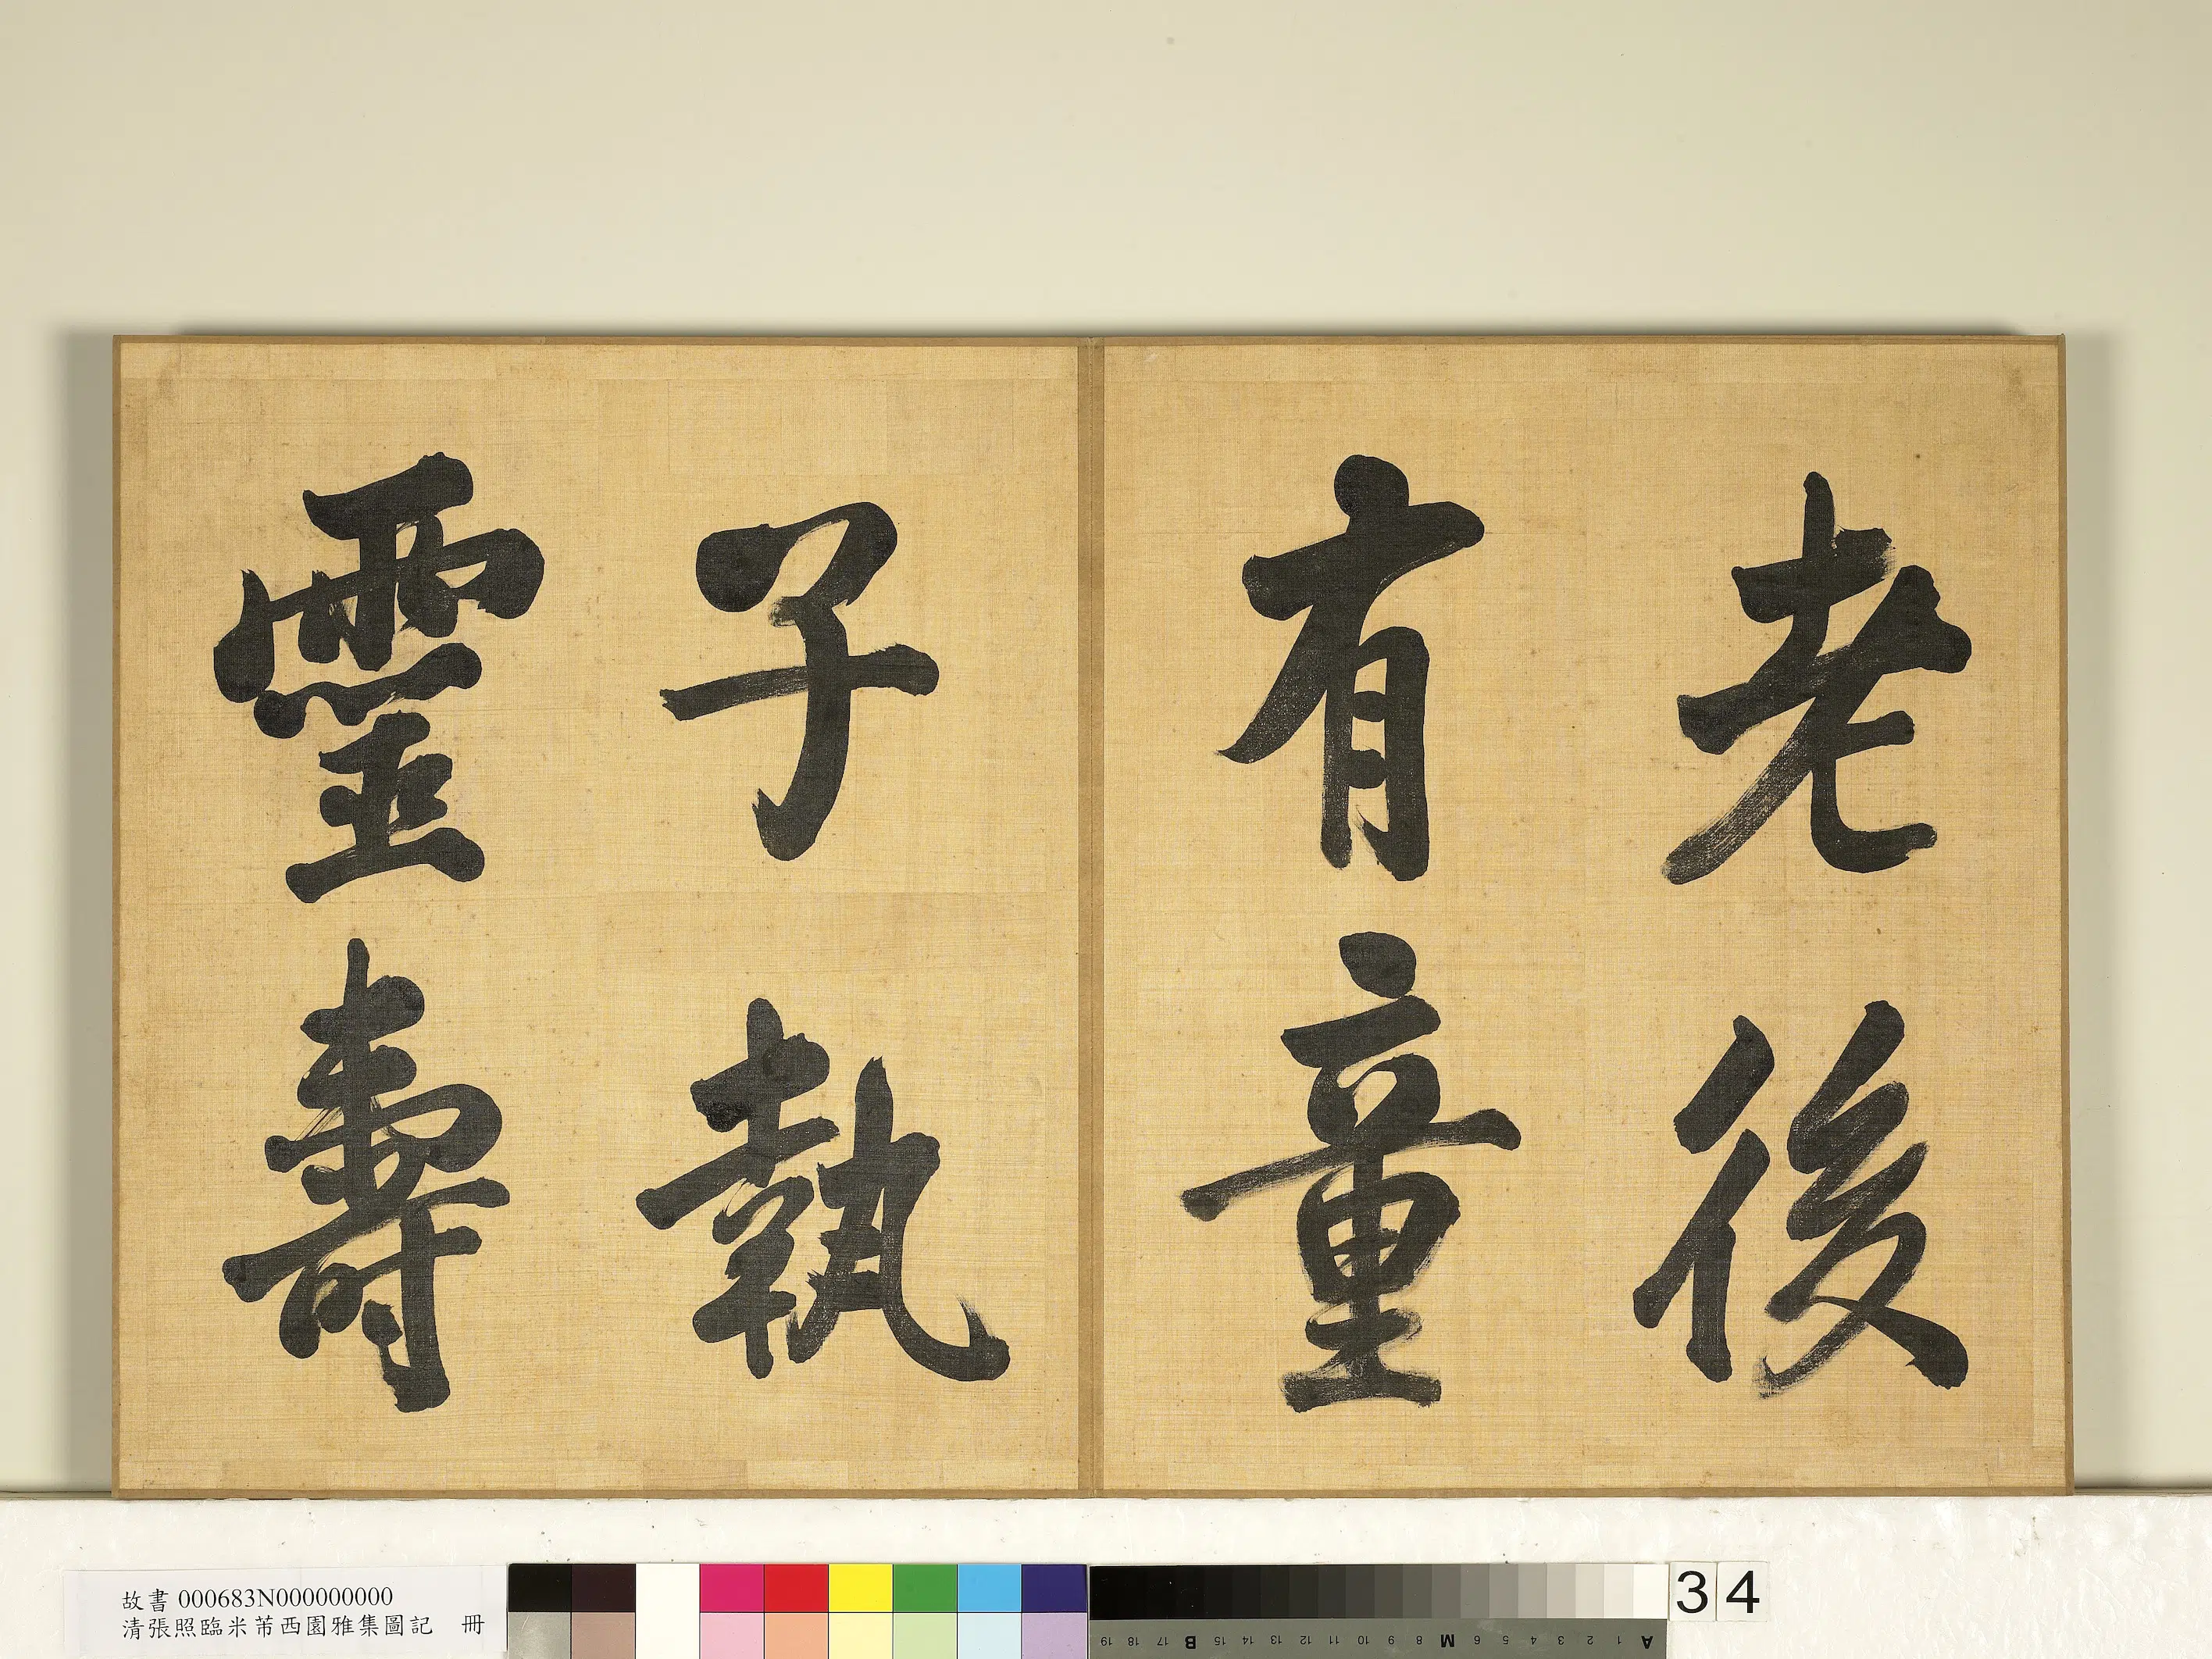 老後
有童
子執
靈壽
故書 000683N000000000
清張照臨米芾西園雅集圖記 冊
34
A 1 2 3 4 5 6 M 8 9 10 11 12 13 14 15 B 17 18 19